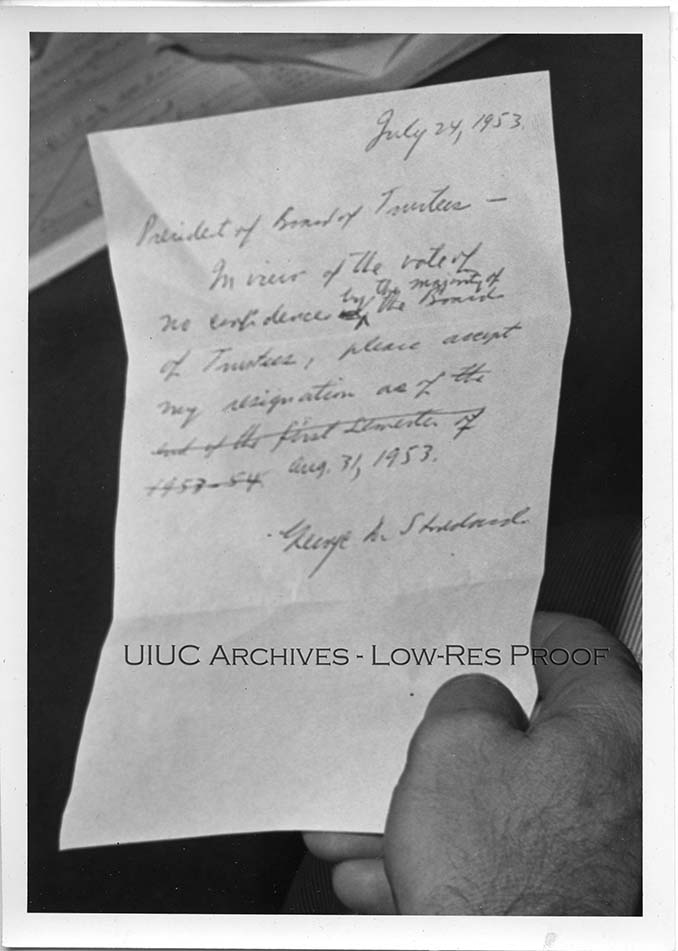 July 24, 1953.
President of Board of Trustees —
In view of the vote of
no confidence by the majority of the Board
of Trustees, please accept
my resignation as of the
end of the first semester of
1953-54. Aug. 31, 1953.
George D. Stoddard
UIUC Archives - Low-Res Proof